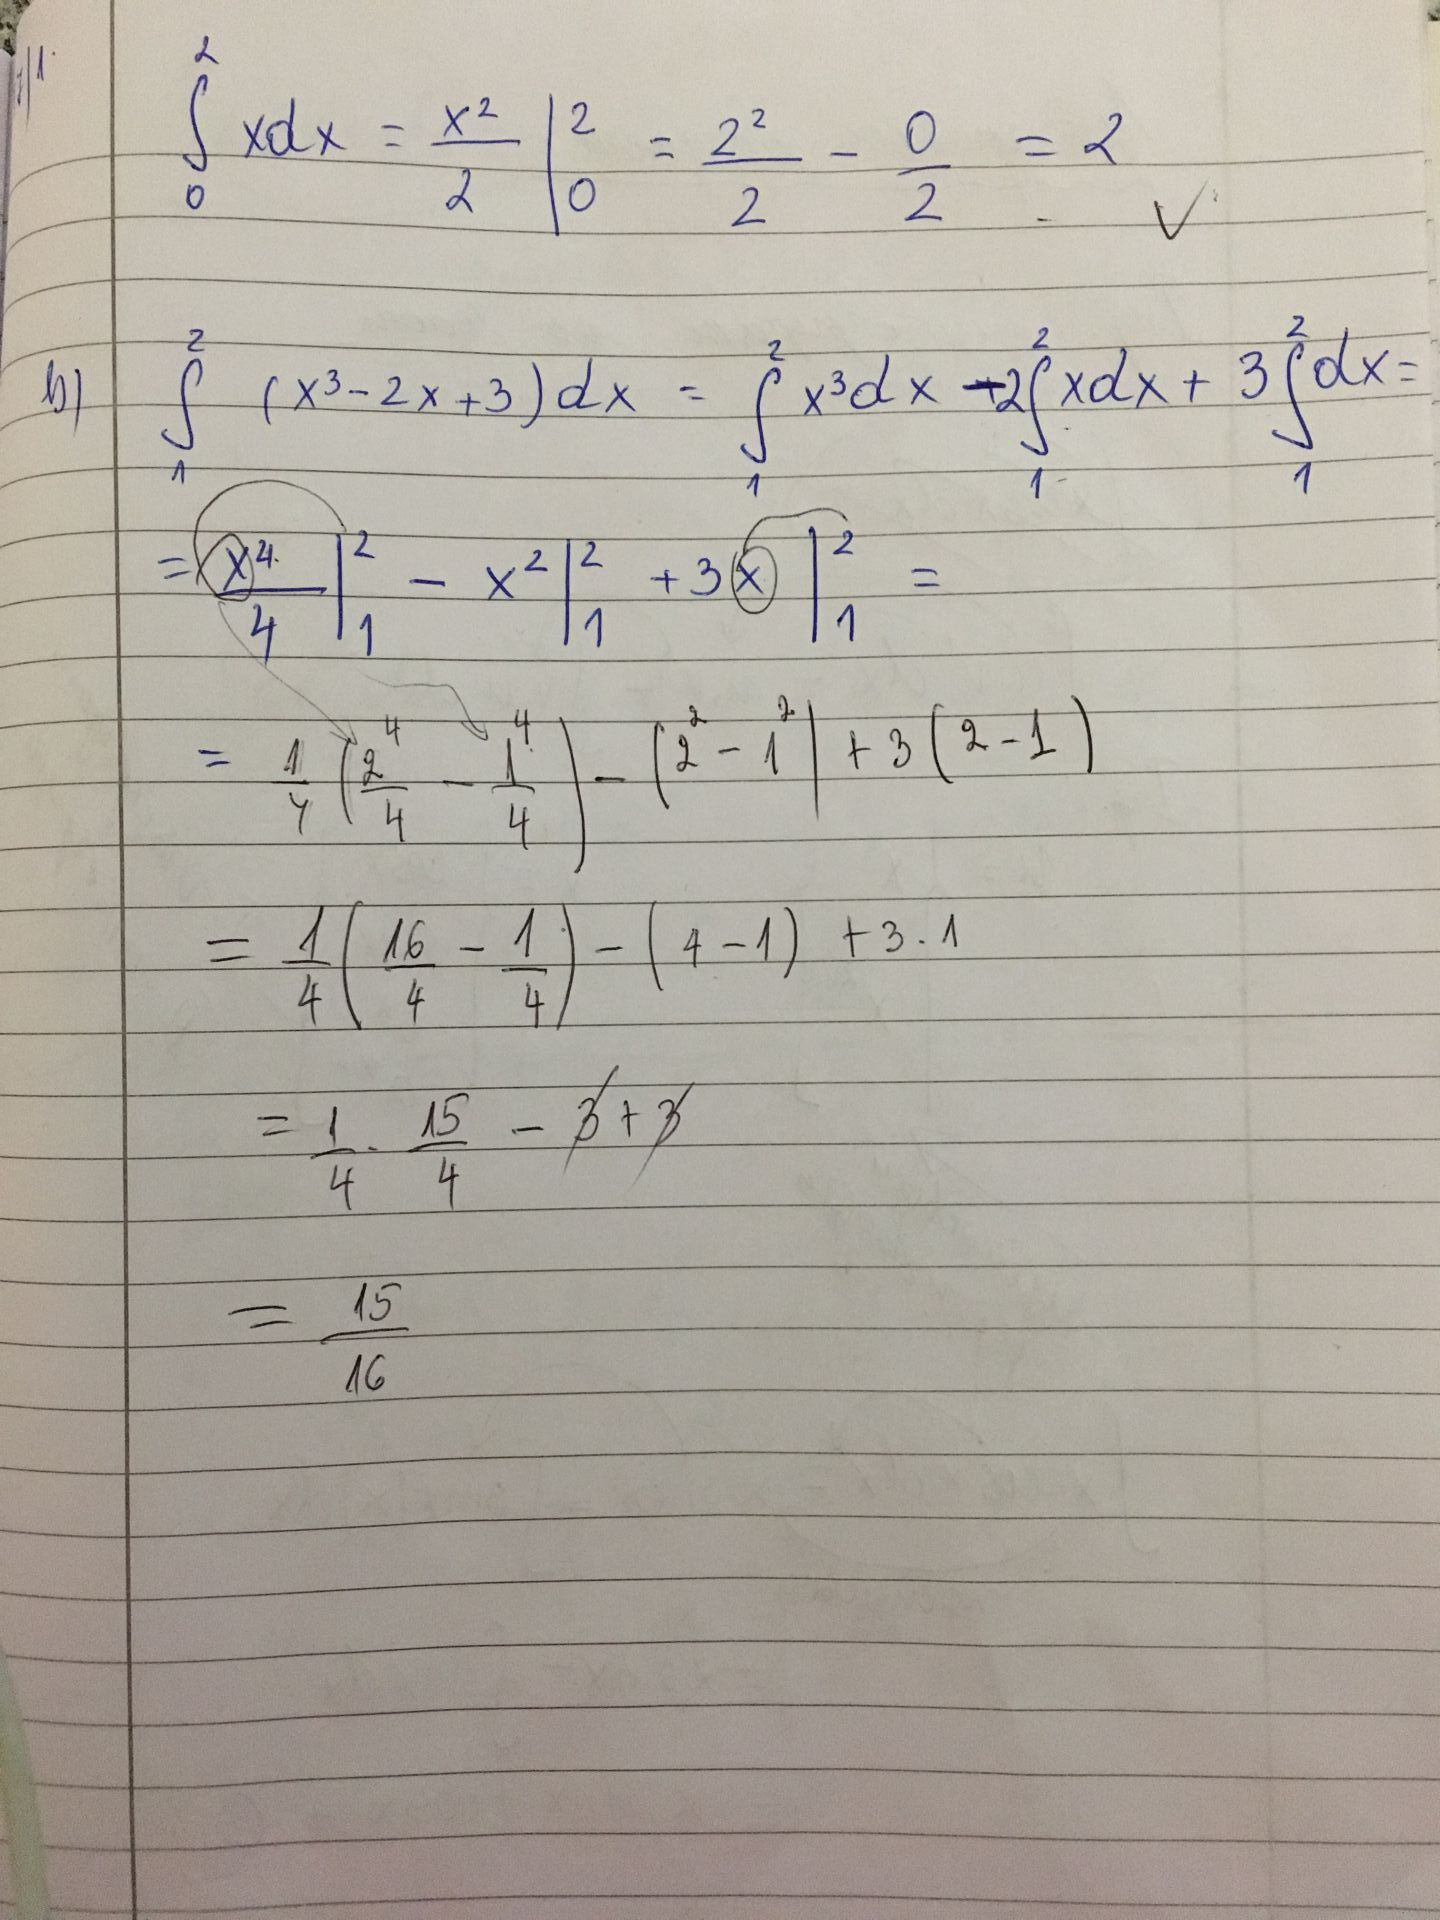 ∫₀² xdx = x²/2 |₀² = 2²/2 - 0/2 = 2 ✓
b) ∫₁² (x³-2x+3)dx = ∫₁² x³dx -2∫₁² xdx + 3∫₁² dx =
= x⁴/4 |₁² - x² |₁² + 3x |₁² =
= 1/4 (2⁴/4 - 1⁴/4) - (2² - 1²) + 3(2-1)
= 1/4 (16/4 - 1/4) - (4-1) + 3·1
= 1/4 · 15/4 - 3 + 3
= 15/16